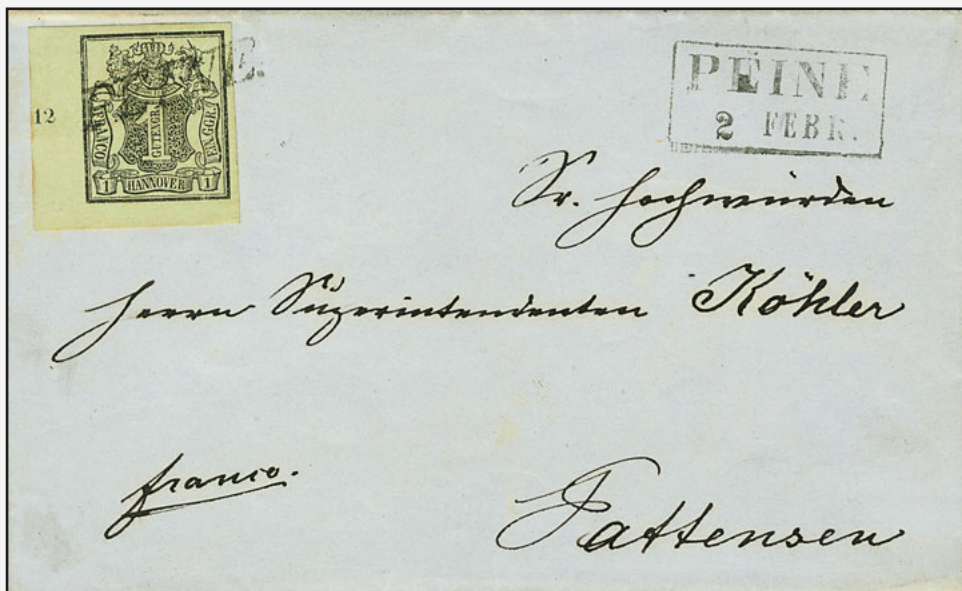 12
FRANCO
1
GUTENGR.
EIN GGR.
1 HANNOVER 1
PEINE
2 FEBR.
Sr. Hochwürden
Herrn Superintendenten Köhler
franco.
Pattensen